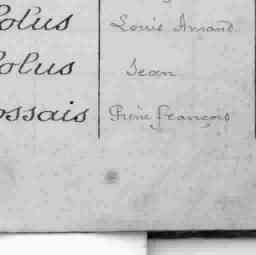 olus Louis Amand
olus Jean
ossais Pierre François